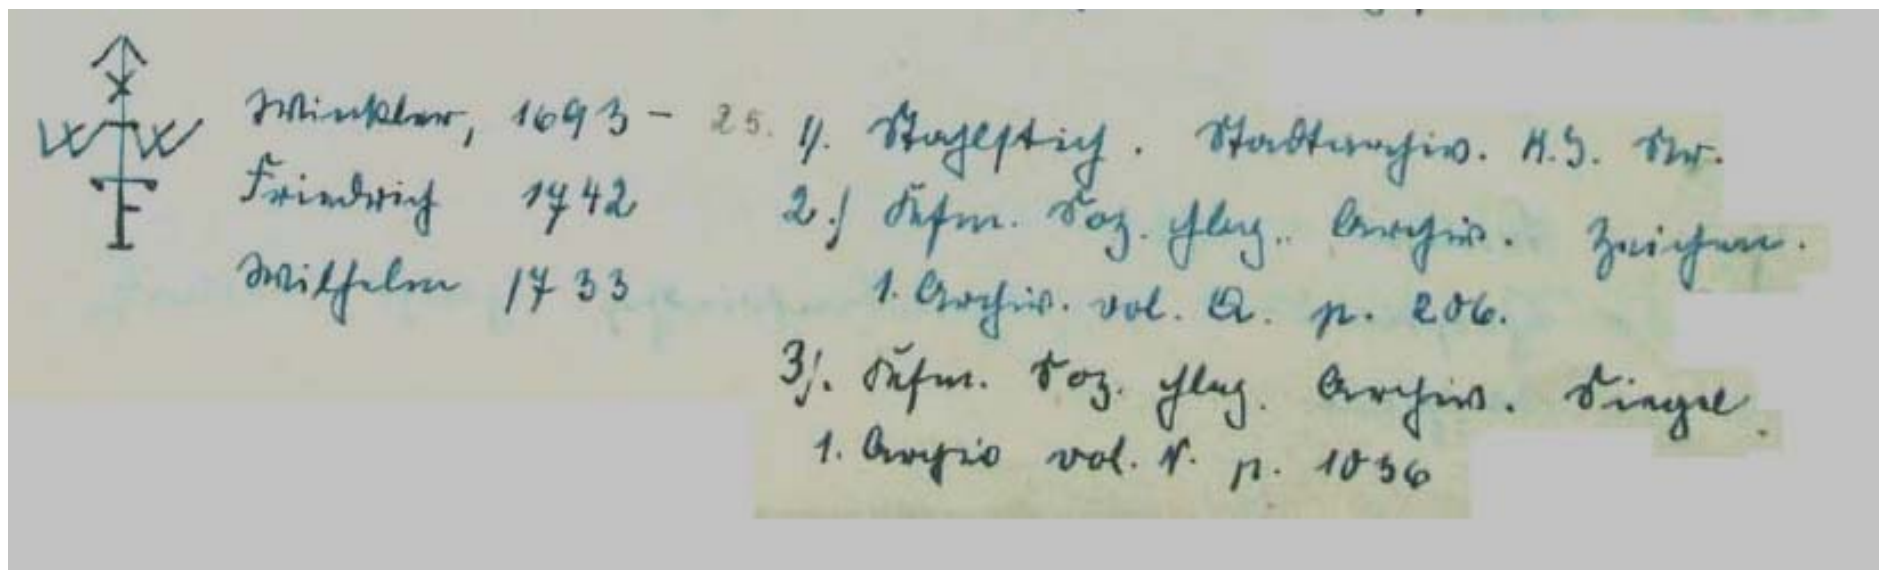 Winkler, 1693 – 25.
Friedrich 1742
Wilhelm 1733
1). Stahlstich. Stadtarchiv. H.Z. Nr.
2.) Kfm. Soz. Hlg. Archiv. Zeichen.
1. Archiv. vol. Q. p. 206.
3). Kfm. Soz. Hlg. Archiv. Siegel.
1. Archiv vol. N. p. 1036